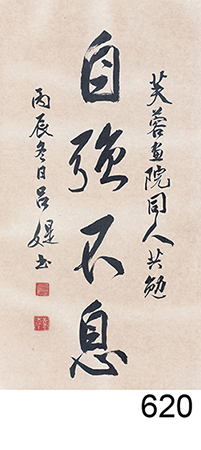 芙蓉画院同人共勉
自强不息
丙辰冬日吕媞书
620